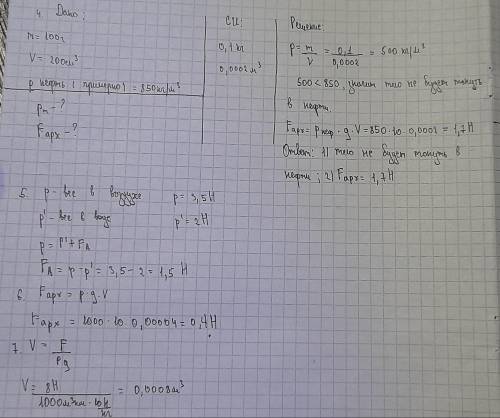 4. Дано:
m = 100г
V = 200см³
p нефть (примерно) = 850кг/м³
pт - ?
Fарх - ?
СИ:
0,1 кг
0,0002 м³
Решение:
p = m/V = 0,1/0,0002 = 500 кг/м³
500 < 850, значит тело не будет тонуть
в нефти.
Fарх = pнеф · g · V = 850 · 10 · 0,0002 = 1,7 Н
Ответ: 1) тело не будет тонуть в
нефти; 2) Fарх = 1,7 Н
5. p - вес в воздухе p = 3,5 Н
p' - вес в воде p' = 2 Н
p = p' + FA
FA = p - p' = 3,5 - 2 = 1,5 Н
6. Fарх = p · g · V
Fарх = 1000 · 10 · 0,00004 = 0,4 Н
7. V = F/pg
V = 8Н / = 0,0008 м³